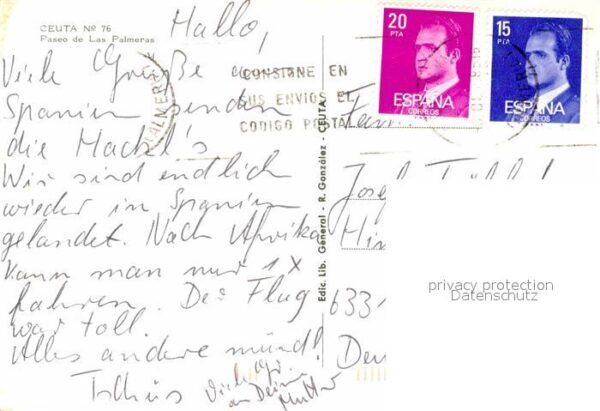 CEUTA Nº 76
Paseo de Las Palmeras
Hallo,
Viele Grüße aus
Spanien senden
die Mackel's
Wir sind endlich
wieder in Spanien
gelandet. Nach Afrika
kann man nur 1x
fahren. Der Flug
war toll.
Alles andere mündl!
Tschüs
Viele Gr.
an Deine
Mutter
CONSIGNE EN
SUS ENVIOS EL
CODIGO POSTAL
PALMERAS
Edic. Lib. General - R. González - CEUTA
20
PTA
ESPAÑA
CORREOS
15
PTA
ESPAÑA
CORREOS
Fam.
Josef
633
privacy protection
Datenschutz